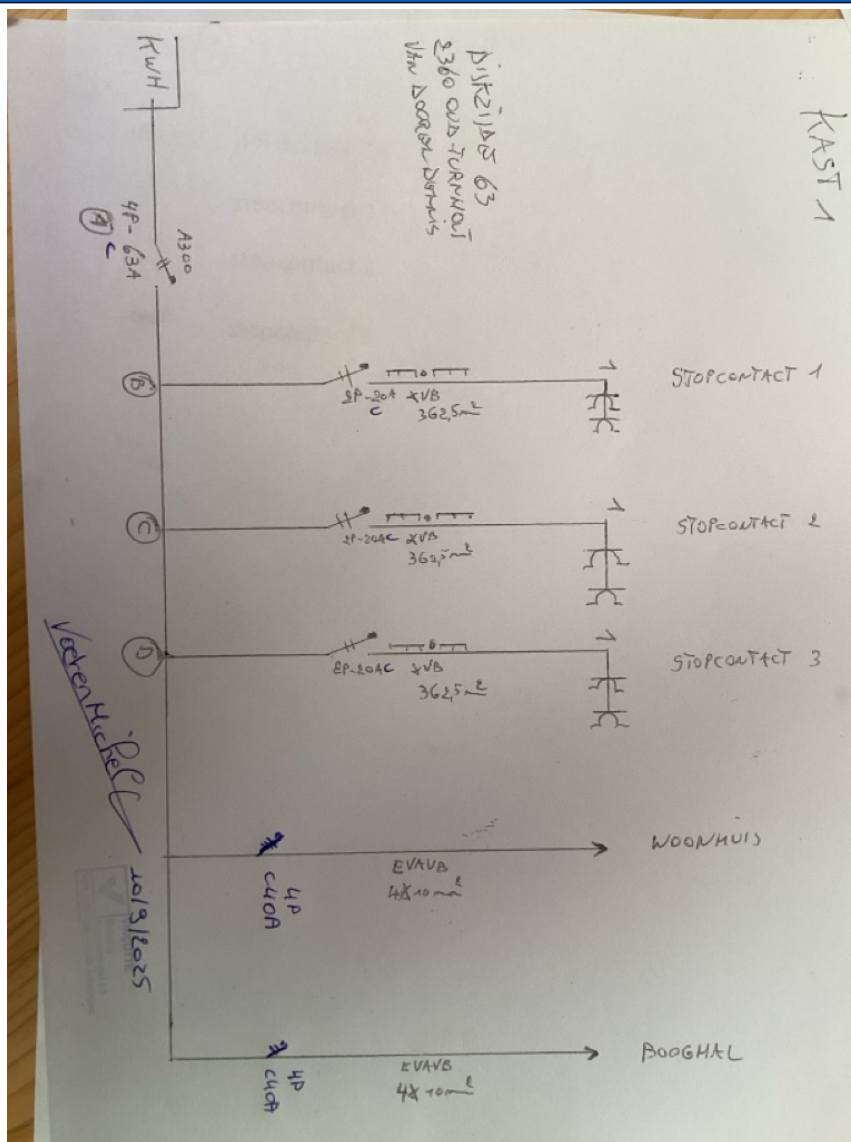 KAST 1
DIJKZIJDE 63
2360 OUD-TURNHOUT
VAN DOOREN DENNIS
KWH
A300
4P - 63A
A C
B
2P-20A XVB
C 3G2,5m²
1
STOPCONTACT 1
C
2P-20A C XVB
3G2,5m²
1
STOPCONTACT 2
D
2P-20A C XVB
3G2,5m²
1
STOPCONTACT 3
4P
C40A
EVAVB
4X10mm²
WOONHUIS
4P
C40A
EVAVB
4X10mm²
BOOGHAL
10/9/2025